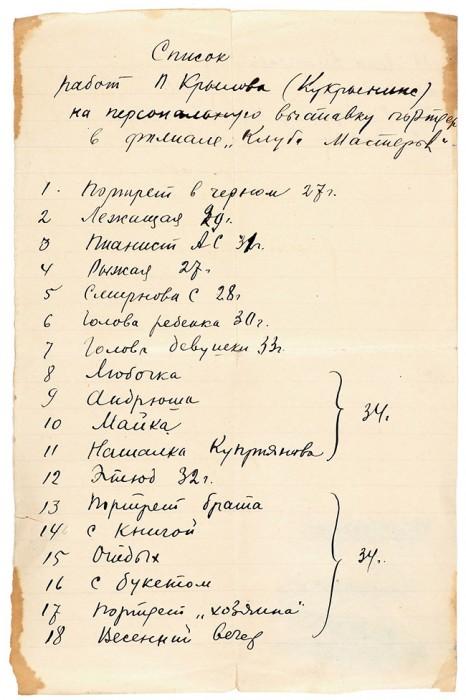 Список
работ П Крылова (Кукрыникс)
на персональную выставку портр
в филиале „Клуба Мастеров"
1. Портрет в черном 27г.
2 Лежищая 29г.
3 Пианист АС 31г.
4 Рыжая 27г
5 Смирнова С 28г
6 Голова ребенка 30г.
7 Голова девушки 33г.
8 Любочка
9 Андрюша
10 Майка
11 Наталка Куприянова
34г.
12 Этюд 32г.
13 Портрет брата
14 с книгой
15 Отдых
16 с букетом
17 Портрет „хозяина"
18 Весенний вечер
34г.